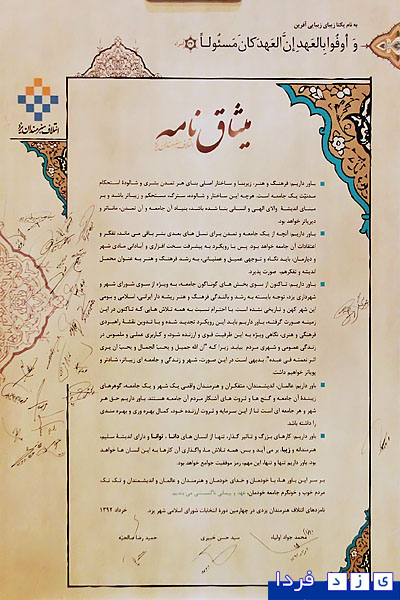 به نام یکتا زیبای زیبایی آفرین
وَ أوفُوا بِالعَهدِ إنَّ العَهدَ کانَ مَسئولاً
ائتلاف هنرمندان یزد
میثاق نامه
ائتلاف هنرمندان یزد
باور داریم، فرهنگ و هنر، زیربنا و ساختار اصلی بنای هر تمدن بشری و شالودهٔ استحکام
مدنیّت یک جامعه است. هرچه این ساختار و شالوده، سترگ، مستحکم و زیباتر باشد و بر
مبنای اندیشهٔ والای الهی و انسانی بنا شده باشد، بنیاد آن جامعه و آن تمدن، ماناتر و
دیرپاتر خواهد بود.
باور داریم، آنچه از یک جامعه و تمدن برای نسل های بعدی بشر باقی می ماند، تفکر و
اعتقادات آن جامعه خواهد بود. پس با رویکرد به پیشرفت سخت افزاری و آبادانی مادی شهر
و دیارمان، باید نگاه و توجهی عمیق و عملیاتی، به رشد فرهنگ و هنر به عنوان محمل
اندیشه و تفکرهم، صورت پذیرد.
باور داریم، تاکنون از سوی بخش های گوناگون جامعه، به ویژه از سوی شورای شهر و
شهرداری یزد، توجه بایسته به رشد و بالندگی فرهنگ و هنر ریشه دار ایرانی، اسلامی و بومی
این شهر کهن و تاریخی نشده است. با احترام نسبت به همه تلاش هایی که تاکنون در این
زمینه صورت گرفته، باور داریم باید این رویکرد تجدید شده و با تدوین نقشهٔ راهبردی
فرهنگی و هنری، نگاهی ویژه به این ظرفیت قوی و ارزنده شود و کاربری عملی و ملموس در
زندگی عمومی و شهری مردم بیابد. زیرا که "ان الله جمیل و یحب الجمال و یحب أن یری
اثر نعمته فی عبده" بدیهی است در این صورت، شهر و زندگی و جامعه ای زیباتر، شادتر و
پویاتر خواهیم داشت.
باور داریم عالمان، اندیشمندان، متفکران و هنرمندان واقعی یک شهر و یک جامعه، گوهرهای
زیبندهٔ آن جامعه و گنج ها و ثروت های آشکار مردم آن جامعه هستند. باور داریم حق هر
شهر و هر جامعه ای است تا از این سرمایه و ثروت ارزنده خود، کمال بهره وری و بهره مندی
را داشته باشد.
باور داریم، کارهای بزرگ و تاثیر گذار، تنها از انسان های دانا، توانا و دارای اندیشهٔ سلیم،
هنرمندانه و زیبا، بر می آید و بس. همه تلاش ما، واگذاری آن کارها به این انسان ها خواهد
بود. باور داریم تنها و تنها، این مهم، رمز موفقیت جوامع خواهد بود.
بر سر این باور ها، با خودمان و خدای خودمان و هنرمندان و عالمان و اندیشمندان و تک تک
مردم خوب و خونگرم جامعه خودمان، عهد و پیمانی ناگسستنی می بندیم.
نامزدهای ائتلاف هنرمندان یزدی در چهارمین دورهٔ انتخابات شورای اسلامی شهر یزد. خرداد ۱۳۹۲
محمد جواد اولیاء سید حسن خبیری حمید رضا صالحیّه
یزد فردا